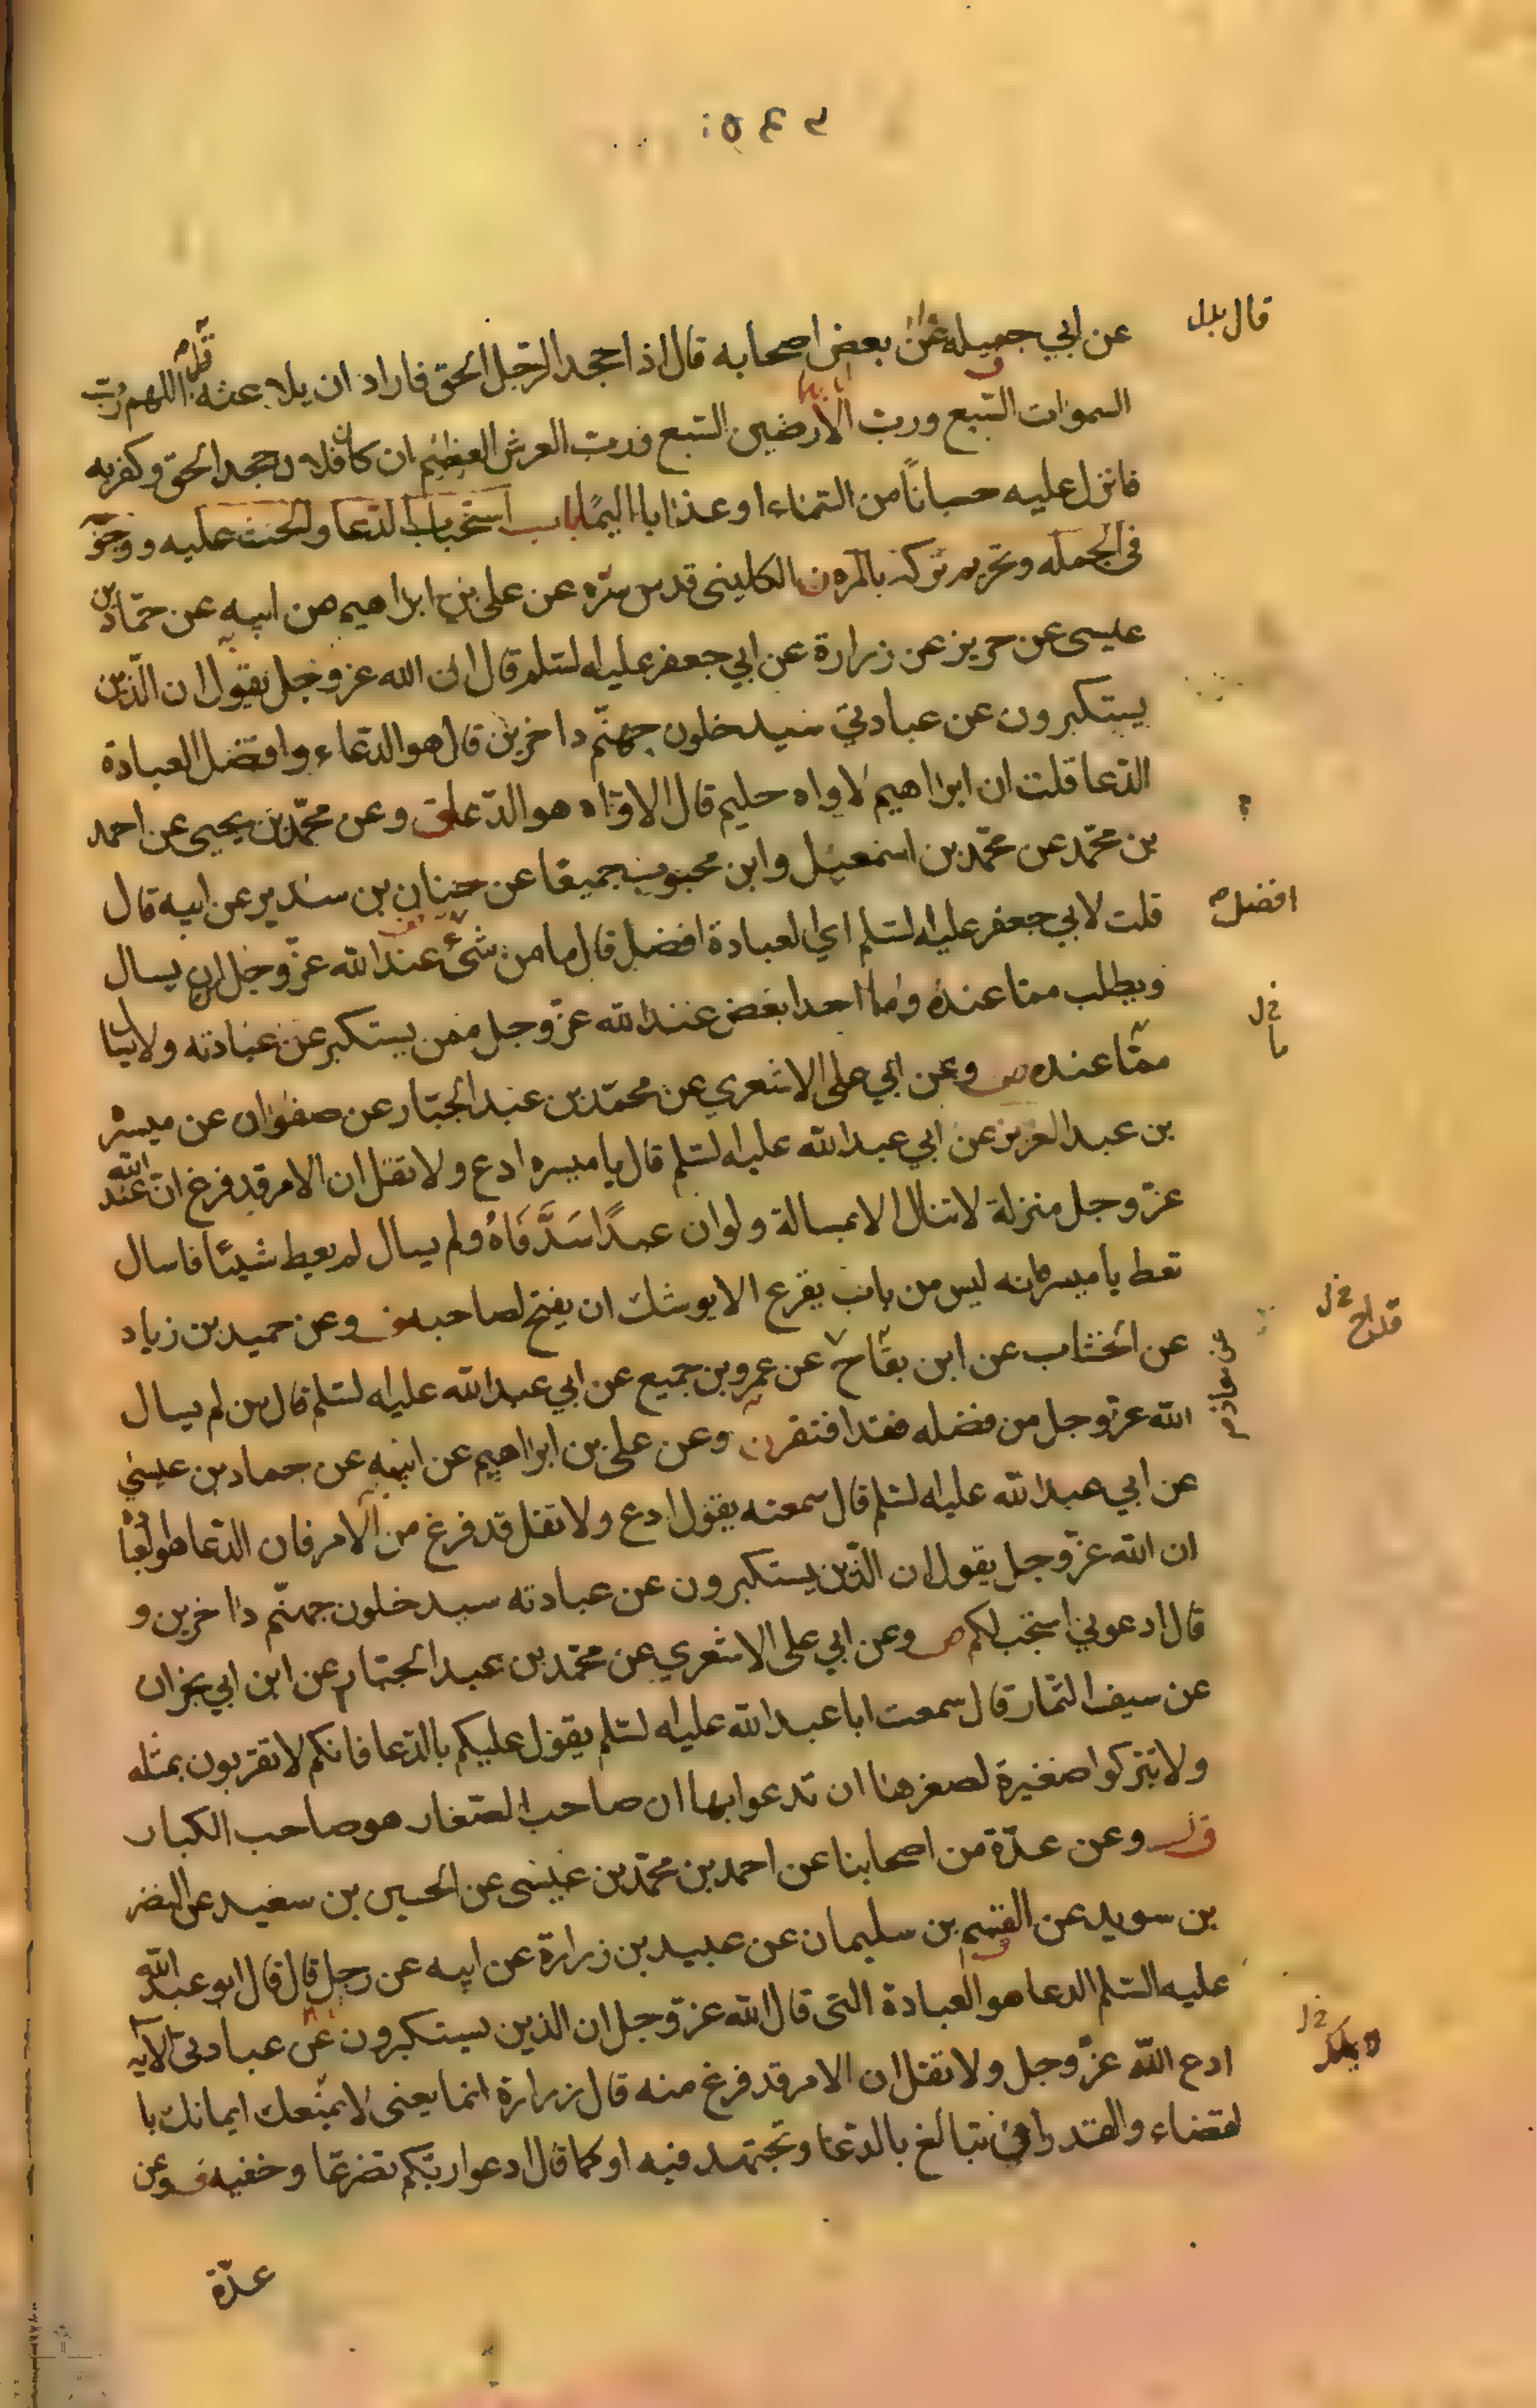 قال بدل
عن ابي جميله عن بعض اصحابه قال اذا جحد الرجل الحق فاراد ان يلاعنه قل اللهم رب
السموات السبع ورب الارضين السبع ورب العرش العظيم ان كان فلان جحد الحق وكفر به
فانزل عليه حسباناً من السماء او عذابا اليمًا باب استحباب الدعا والحث عليه ووجوبه
فى الجمله وتحريم تركه بالمره ن الكلينى قدس سره عن على بن ابراهيم عن ابيه عن حمّاد بن
عيسى عن حريز عن زرارة عن ابي جعفر عليه السلم قال ان الله عز وجل يقول ان الّذين
يستكبرون عن عبادتي سيدخلون جهنّم داخرين قال هو الدعاء وافضل العبادة
الدّعا قلت ان ابراهيم لاواه حليم قال الاوّاه هو الدّعا ق وعن محمّد بن يحيى عن احمد
بن محمّد عن محمّد بن اسمعيل وابن محبوب جميعا عن حنان بن سدير عن ابيه قال
قلت لابي جعفر عليه السلم اي العبادة افضل قال ما من شئ عند الله عزّ وجل ان يسال
افضل
ويطلب ممّا عنده وما احد ابغض عند الله عزّ وجل ممن يستكبر عن عبادته ولا يسال
خ ل
ما
ممّا عنده ص وعن ابي على الاشعري عن محمّد بن عبد الجبّار عن صفوان عن ميسر
بن عبد العزيز عن ابي عبد الله عليه السلم قال يا ميسره ادع ولا تقل ان الامر قد فرغ انّ عند الله
عزّ وجل منزلة لا تنال الا بمسالة ولو ان عبدًا سَدَّ فَاهُ ولم يسال لم يعط شيئا فاسال
تعط يا ميسر انه ليس من باب يقرع الا يوشك ان يفتح لصاحبه ف وعن حميد بن زياد
خ ل
قداح
عن الخشاب عن ابن بقّاح عن عمرو بن جميع عن ابي عبد الله عليه السلم قال من لم يسال
عن معاذ م
الله عزّ وجل من فضله فقد افتقر ن وعن على بن ابراهيم عن ابيه عن حماد بن عيسى
عن ابي عبد الله عليه السلم قال سمعته يقول ادع ولا تقل قد فرغ من الامر فان الدّعا هو العبا
ان الله عزّ وجل يقول ان الذّين يستكبرون عن عبادته سيدخلون جهنّم داخرين و
قال ادعوني استجب لكم ص وعن ابي على الاشعري عن محمّد بن عبد الجبّار عن ابن ابي نجران
عن سيف التمّار قال سمعت ابا عبد الله عليه السلم يقول عليكم بالدّعا فانكم لا تقربون بمثله
ولا تتركوا صغيرة لصغرها ان تدعوا بها ان صاحب الصّغار هو صاحب الكبار
ق وعن عدّة من اصحابنا عن احمد بن محمّد بن عيسى عن الحسين بن سعيد عن النضر
بن سويد عن القسم بن سليمان عن عبيد بن زرارة عن ابيه عن رجل قال قال ابو عبد الله
عليه السّلم الدعا هو العبادة التى قال الله عزّ وجل ان الذين يستكبرون عن عبادتى الآيه
ادع الله عزّ وجل ولا تقل ان الامر قد فرغ منه قال زرارة انما يعنى لا يمنعك ايمانك با
خ ل
لا يملك
لقضاء والقدر ان تبالغ بالدّعا وتجتهد فيه او كما قال ادعوا ربّكم تضرعا وخفيه ف وعن
عدّة